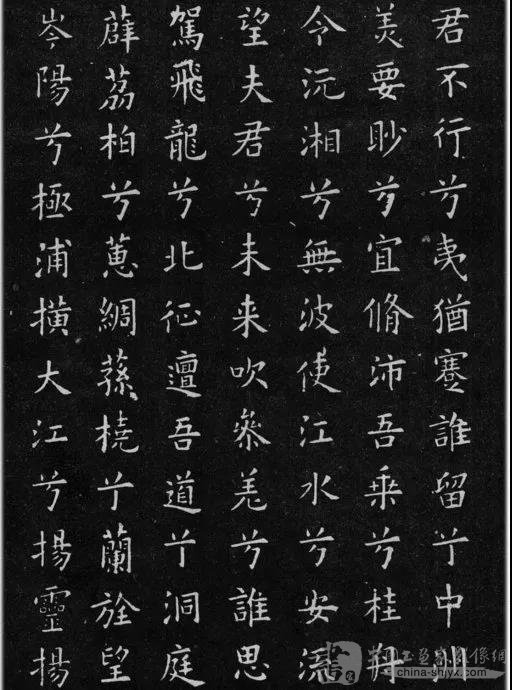 君不行兮夷猶蹇誰留兮中洲
美要眇兮宜脩沛吾乗兮桂舟
令沅湘兮無波使江水兮安流
望夫君兮未来吹參差兮誰思
駕飛龍兮北征邅吾道兮洞庭
薜荔柏兮蕙綢蓀橈兮蘭旌望
岑陽兮極浦横大江兮揚靈揚
china-shjyx.com